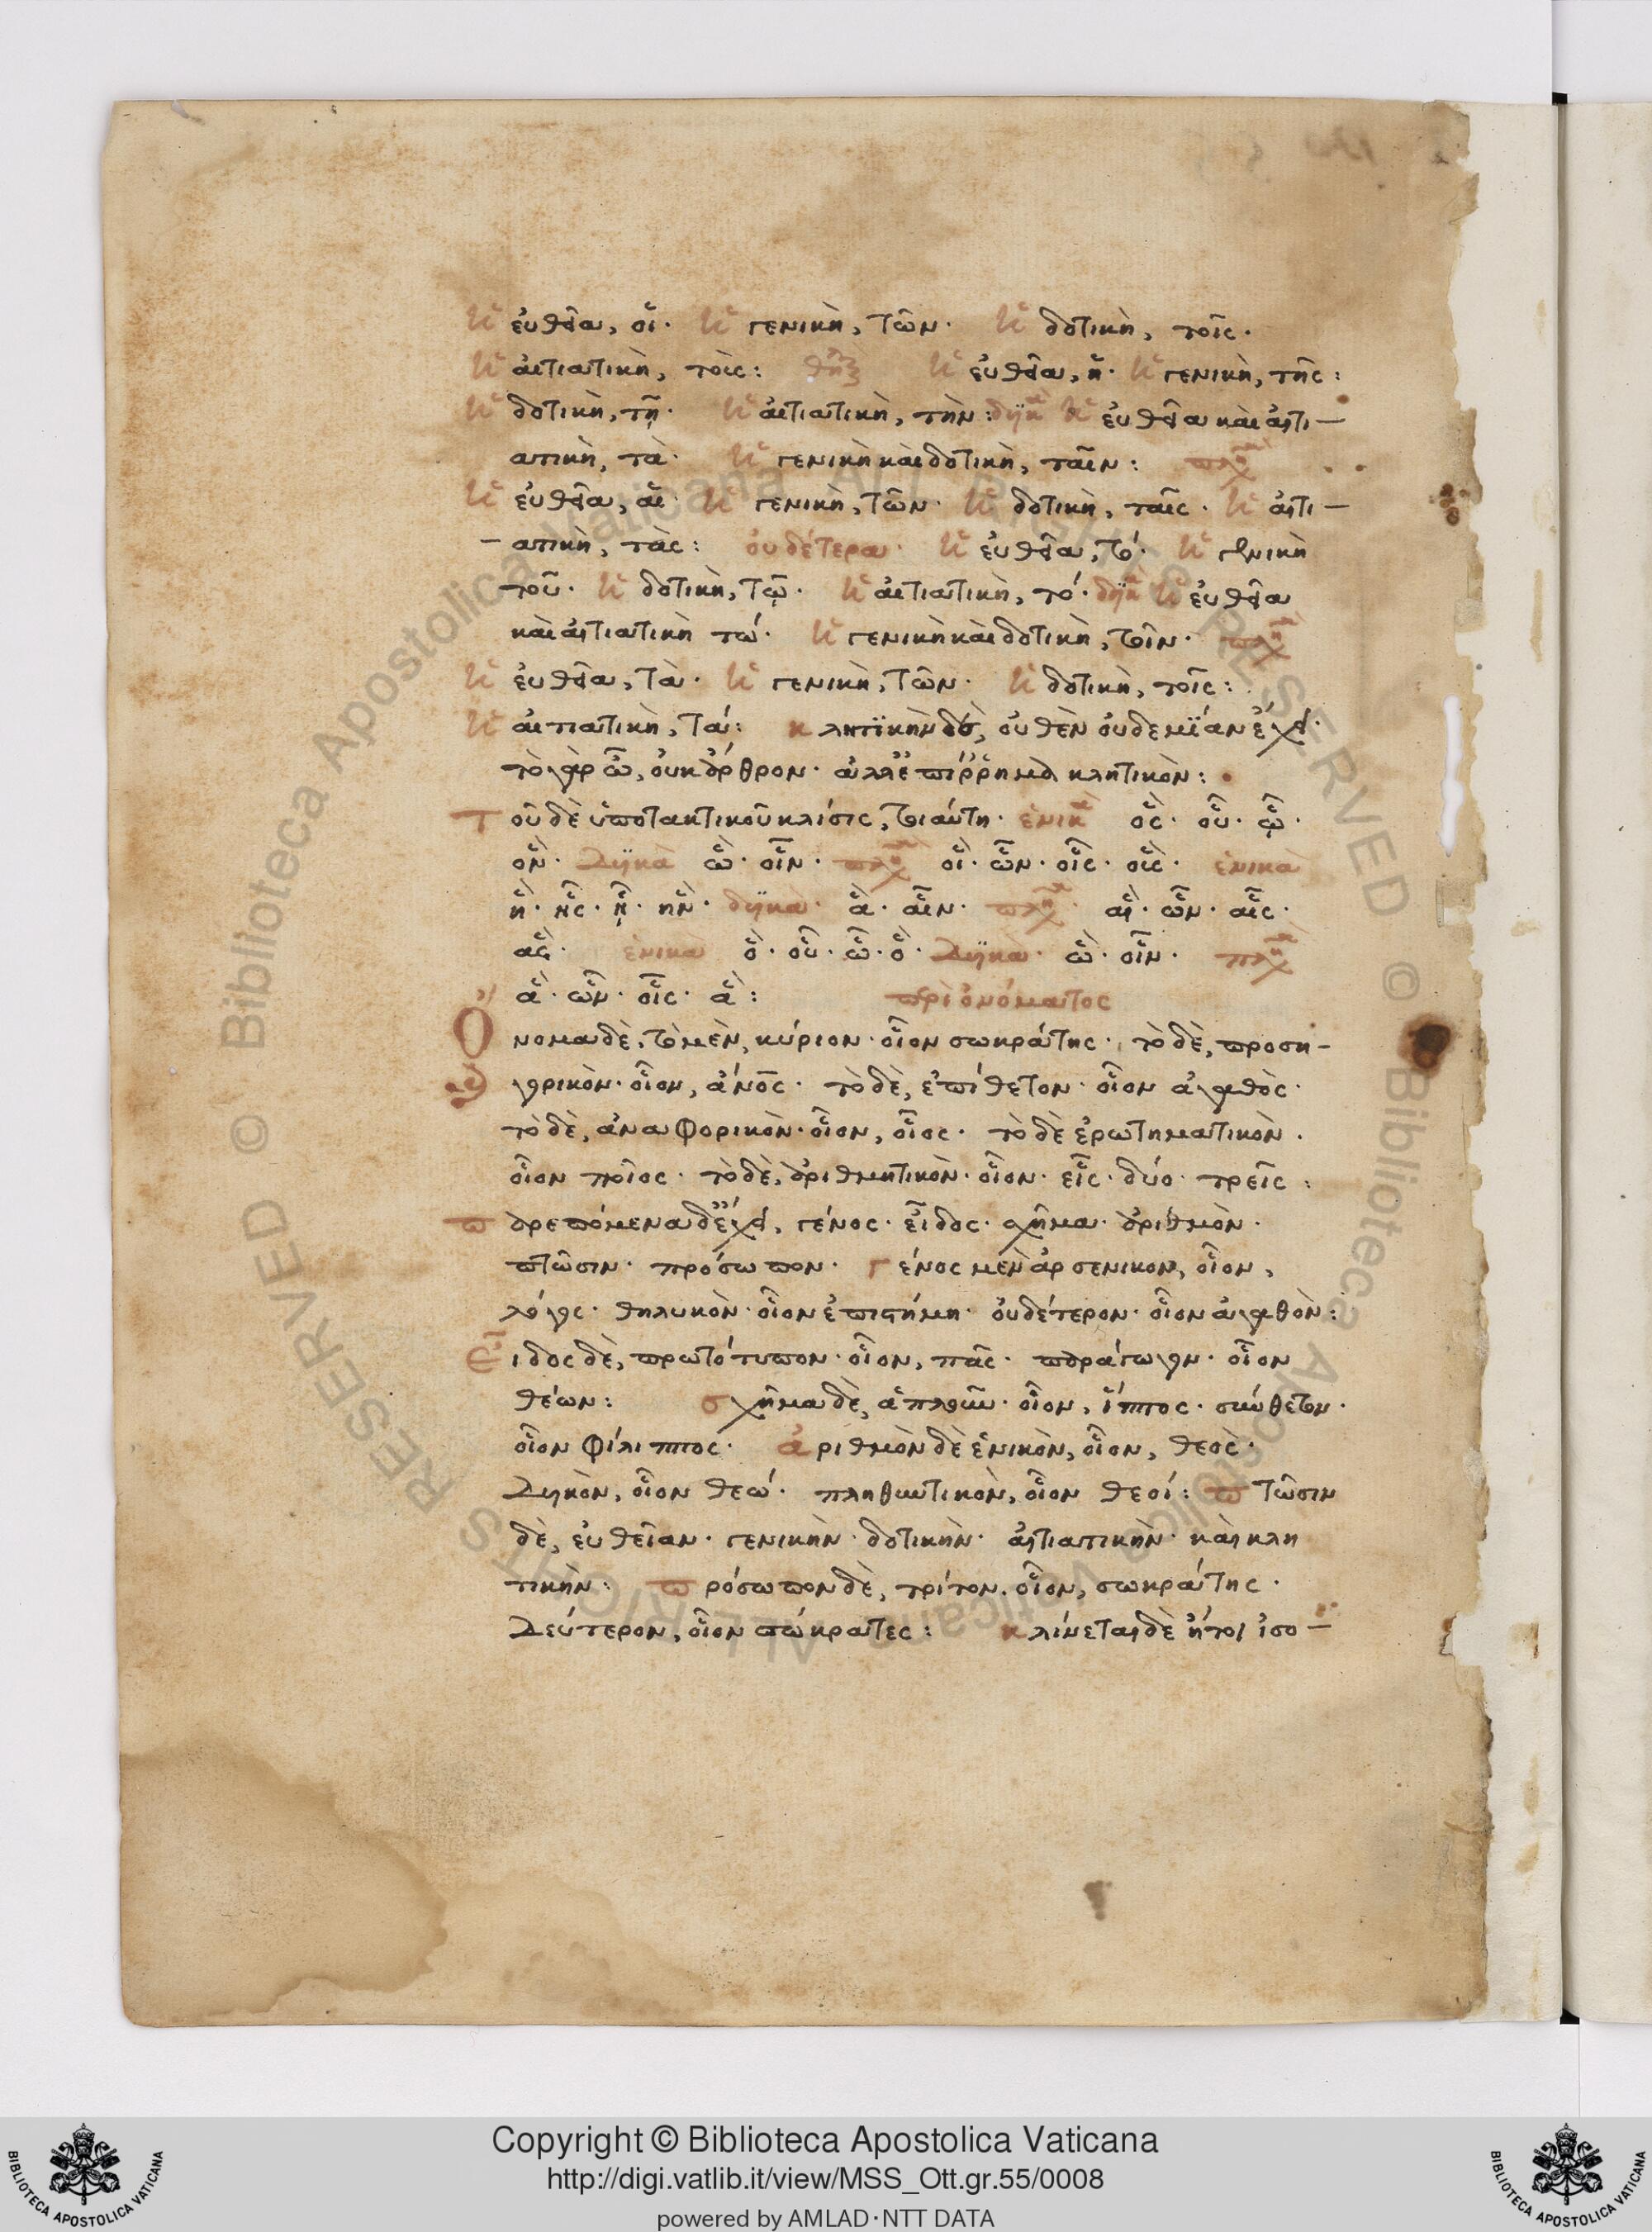 ἡ εὐθεῖα, οἵ. ἡ γενικὴ, τῶν. ἡ δοτικὴ, τοῖς.
ἡ αἰτιατικὴ, τοὺς: ἡ εὐθεῖα, ἥ. ἡ γενικὴ, τῆς:
ἡ δοτικὴ, τῇ. ἡ αἰτιατικὴ, τὴν: δυϊκ ἡ εὐθεῖα καὶ αἰτι-
ατικὴ, τὰ. ἡ γενικὴ καὶ δοτικὴ, ταῖν: πλη
ἡ εὐθεῖα, αἵ. ἡ γενικὴ, τῶν. ἡ δοτικὴ, ταῖς. ἡ αἰτι-
-ατικὴ, τὰς: οὐδέτερα. ἡ εὐθεῖα, τό. ἡ γενικὴ
τοῦ. ἡ δοτικὴ, τῷ. ἡ αἰτιατικὴ, τό. δυϊκ ἡ εὐθεῖα
καὶ αἰτιατικὴ τώ. ἡ γενικὴ καὶ δοτικὴ, τοῖν. πλη
ἡ εὐθεῖα, τὰ. ἡ γενικὴ, τῶν. ἡ δοτικὴ, τοῖς:
ἡ αἰτιατικὴ, τά: κλητϊκὴν δὲ, οὐθὲν οὐδεμΐαν ἔχει.
τὸ γὰρ ὦ, οὐκ ἄρθρον. ἀλλ' ἐπίρρημα κλητικὸν:
Τοῦ δὲ ὑποτακτικοῦ κλίσις, τοιαύτη. ἑνικ ὃς. οὗ. ᾧ.
ὃν. Δυϊκὰ ὣ. οἷν. πλη οἳ. ὧν. οἷς. οὓς. ἑνικὰ
ἣ. ἧς. ᾗ. ἣν. δυϊκὰ. ἃ. αἷν. πλη αἳ. ὧν. αἷς.
ἃς. ἑνικὰ ὃ. οὗ. ᾧ. ὃ. Δυϊκὰ. ὣ. οἷν. πλη
ἃ. ὧν. οἷς. ἃ: περὶ ὀνόματος
Ὄνομα δὲ, τὸ μὲν, κύριον. οἷον σωκράτης. τὸ δὲ, προση-
γορικὸν. οἷον, ἄνος. τὸ δὲ, ἐπίθετον. οἷον ἀγαθὸς.
τὸ δὲ, ἀναφορικὸν. οἷον, οἷος. τὸ δὲ ἐρωτηματικὸν.
οἷον ποῖος. τὸ δὲ, ἀριθμητικὸν. οἷον. εἷς. δύο. τρεῖς:
παρεπόμενα δὲ ἔχει, γένος. εἶδος. σχῆμα. ἀριθμὸν.
πτῶσιν. πρόσωπον. Γένος μὲν ἀρσενικον, οἷον,
λόγος. θηλυκὸν. οἷον ἐπιστήμη. οὐδέτερον. οἷον ἀγαθὸν:
Εἶδος δὲ, πρωτότυπον. οἷον, πᾶς. παράγωγον. οἷον
θέων: σχῆμα δὲ, ἁπλοῦν. οἷον, ἵππος. σύνθετον.
οἷον φίλιππος. ἀριθμὸν δὲ ἑνικὸν, οἷον, θεὸς.
Δυϊκὸν, οἷον θεώ. πληθυντικὸν, οἷον θεοί: πτῶσιν
δὲ, εὐθεῖαν. γενικὴν. δοτικὴν. αἰτιατικὴν. καὶ κλη
τικὴν: πρόσωπον δὲ, τρίτον. οἷον, σωκράτης.
Δεύτερον, οἷον σώκρατες: κλίνεται δὲ ἤτοι ἰσο-
Copyright © Biblioteca Apostolica Vaticana
http://digi.vatlib.it/view/MSS_Ott.gr.55/0008
powered by AMLAD·NTT DATA